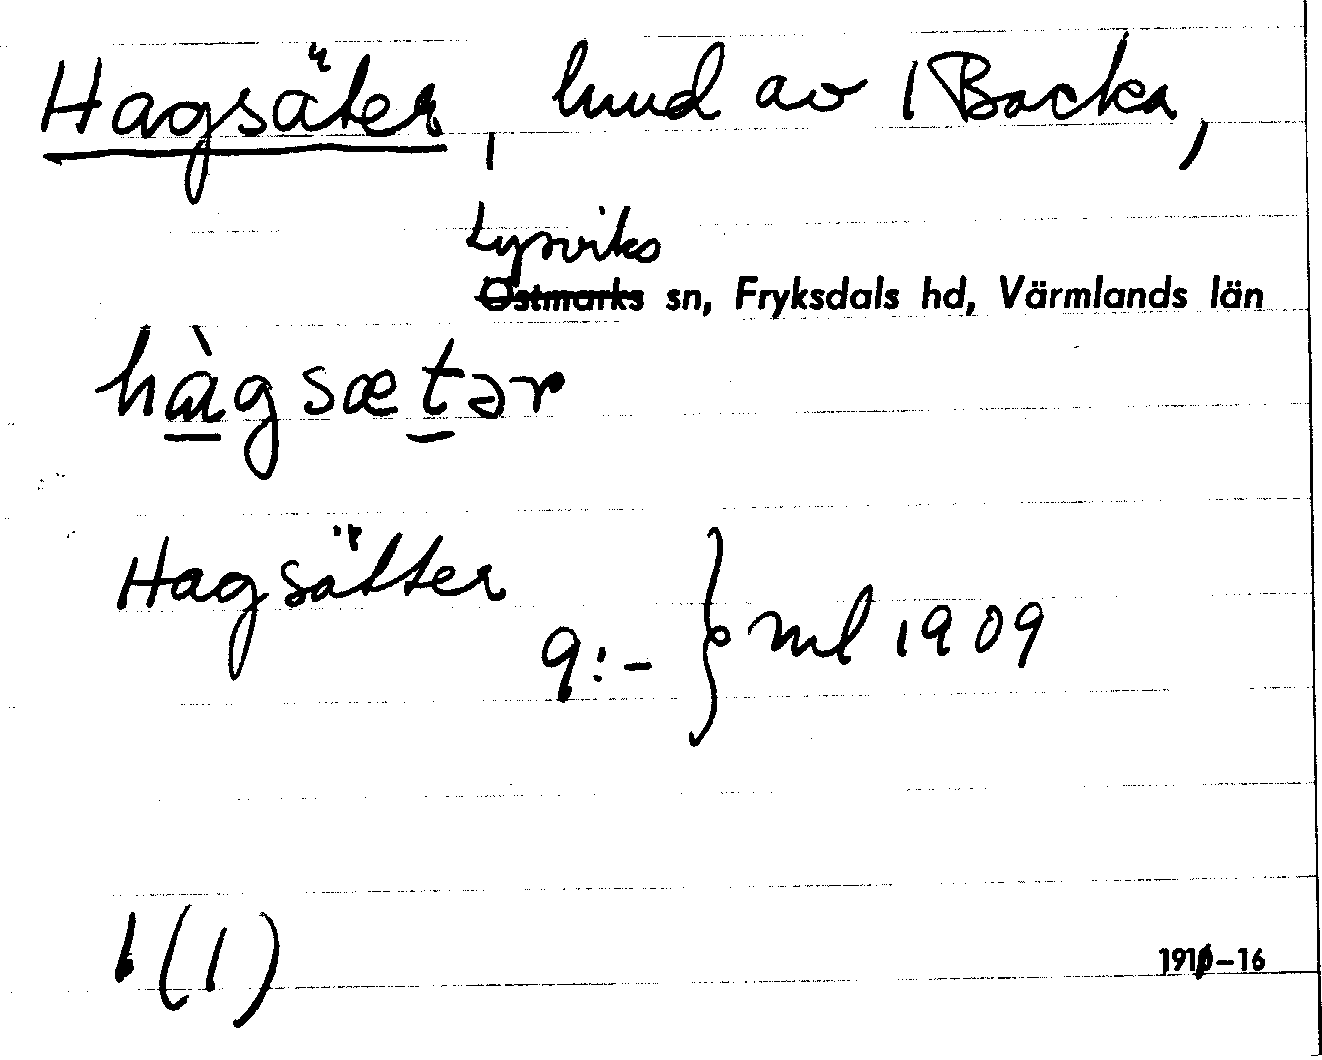 Hagsäter, lund av 1 Backa,
Lysviks
Östmarks sn, Fryksdals hd, Värmlands län
hàgsætər
Hagsätter
9:- } ml 1909
1 (1)
1910–16